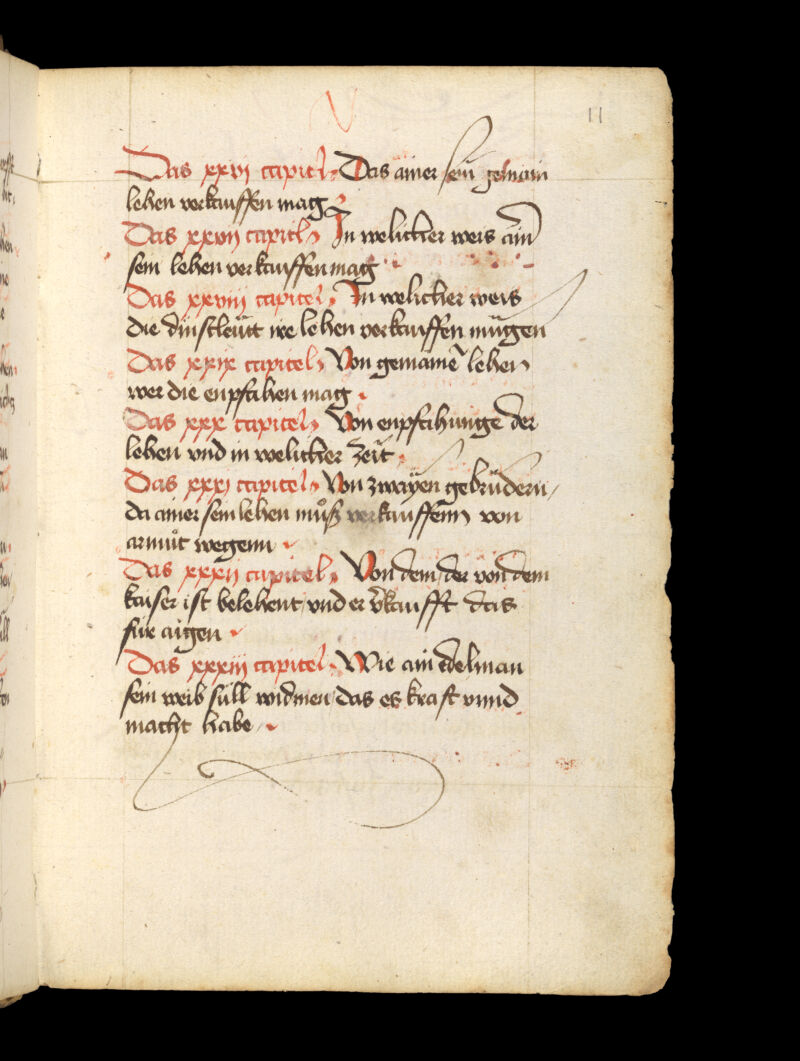 V
11
Das xxvi capitel Das ainer sein gemain
lehen verkauffen mag
Das xxvii capitel In welicher weis ain
sein lehen verkauffen mag
Das xxviii capitel In welicher weis
die dinstleẅt ire lehen verkauffen mügen
Das xxix capitel Von gemainē lehen
wer die enpfahen mag
Das xxx capitel Von enpfahunge der
lehen vnd in welicher zeit
Das xxxi capitel Von zwaÿen gebrüdern /
da ainer sein lehen müß verkauffenn von
armůt wegenn
Das xxxii capitel Von dem / der von dem
kaiser ist belehent / vnd er v̄kaufft das
für aigen
Das xxxiii capitel Wie ain edelman
sein weib süll widmen / das es kraft vnnd
macht habe